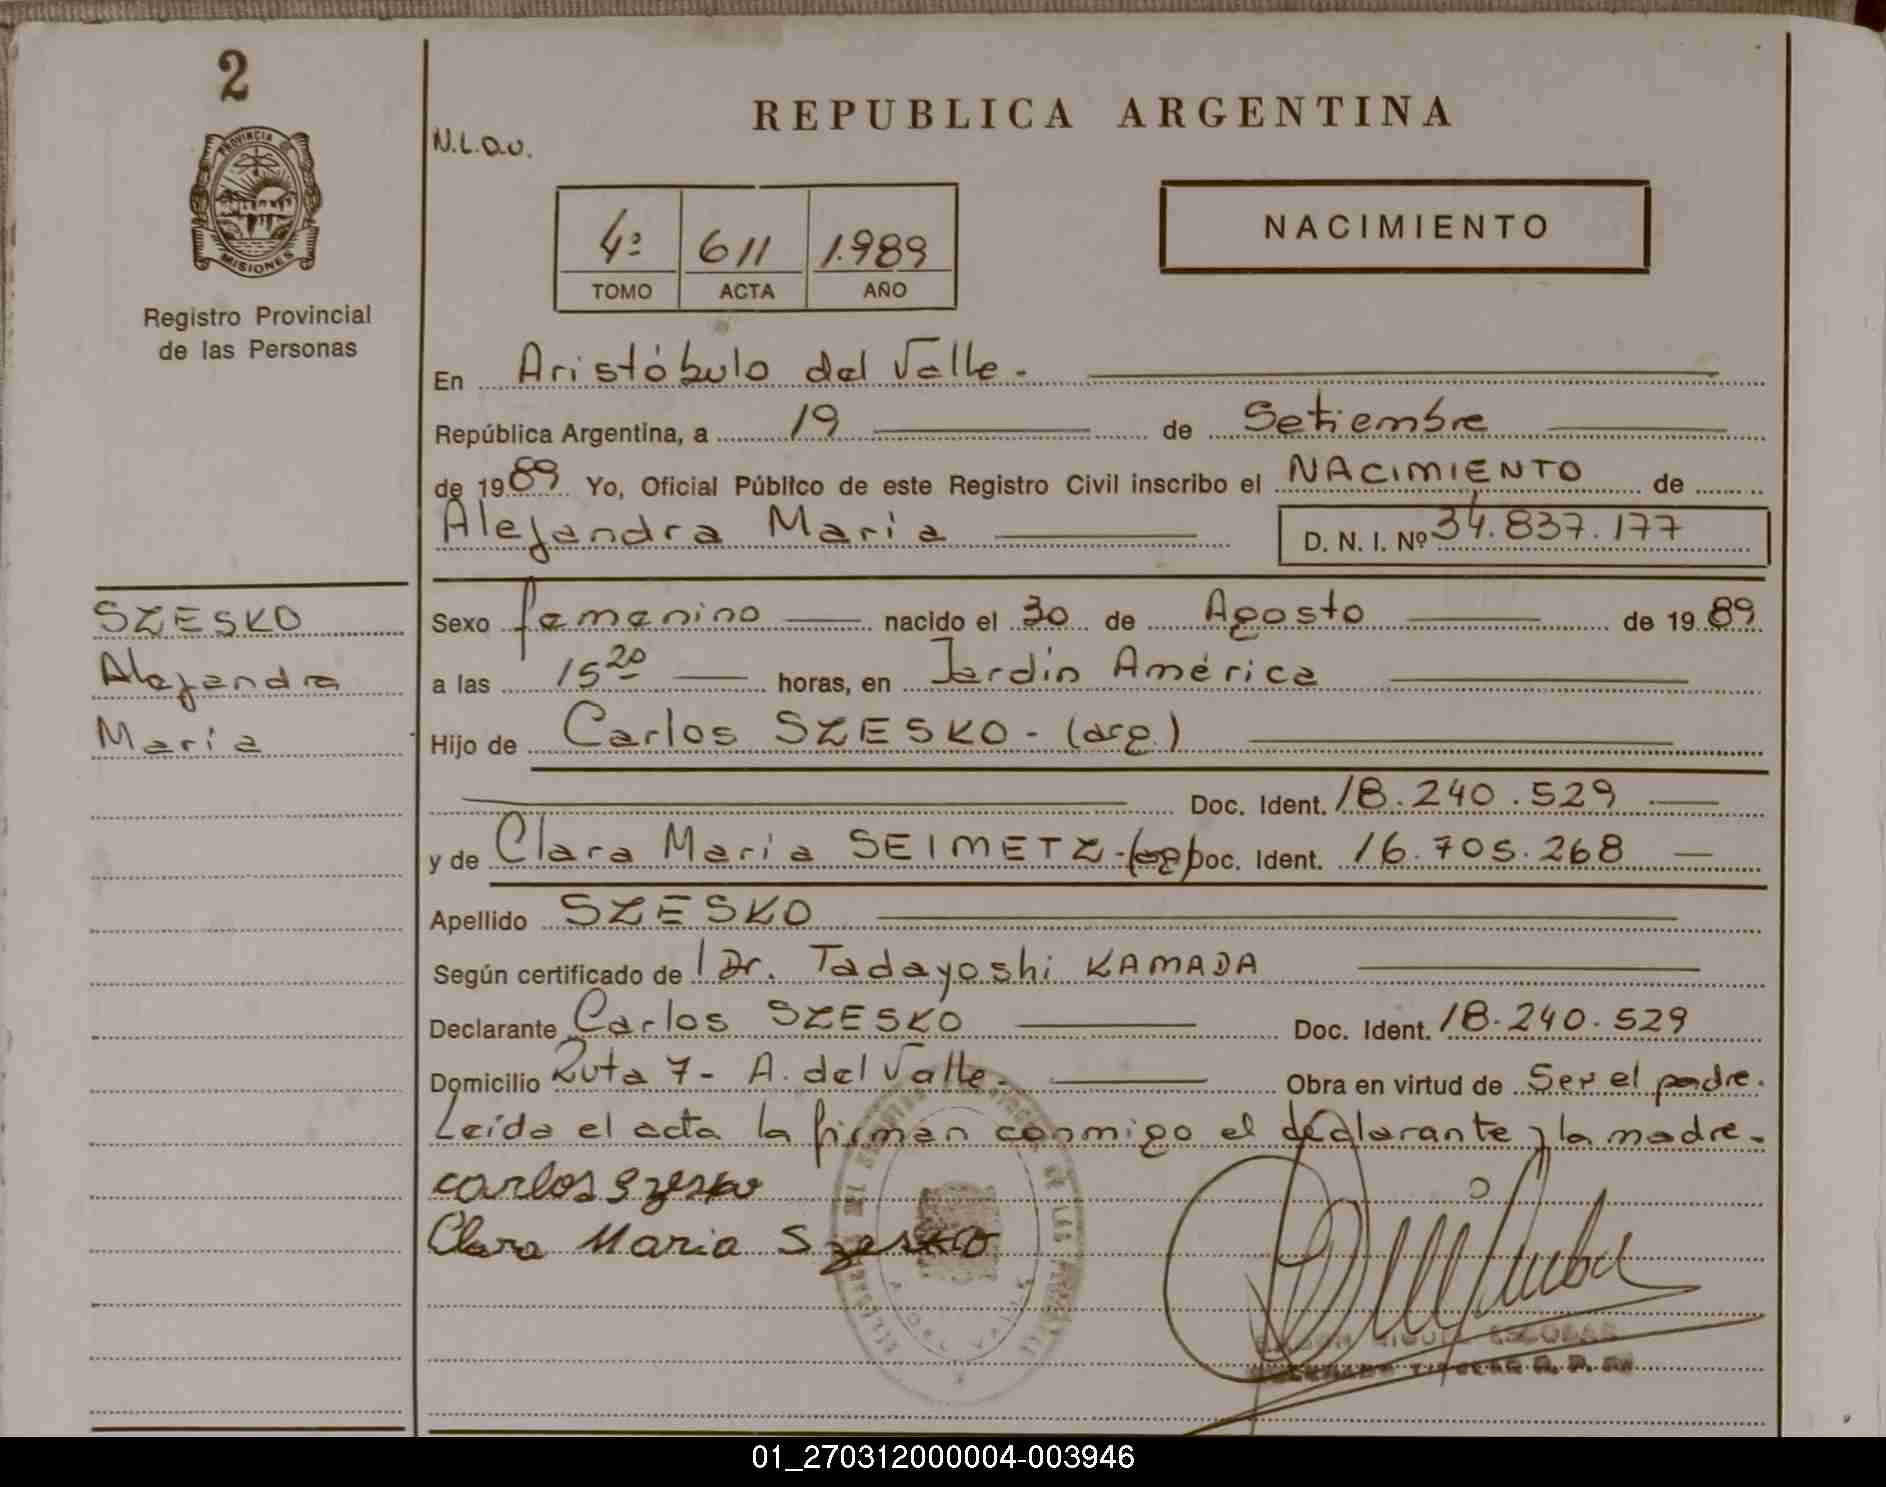 2
PROVINCIA
MISIONES
Registro Provincial
de las Personas
SZESKO
Alejandra
María
REPUBLICA ARGENTINA
N.L.O.U.
NACIMIENTO
4º 611 1.989
TOMO ACTA AÑO
En Aristóbulo del Valle.
República Argentina, a 19 de Setiembre
de 1989 Yo, Oficial Público de este Registro Civil inscribo el NACIMIENTO de
Alejandra María D. N. I. Nº 34.837.177
Sexo femenino nacido el 30 de Agosto de 1989
a las 15 20 horas, en Jardín América
Hijo de Carlos SZESKO - (arg.)
Doc. Ident. 18.240.529
y de Clara María SEIMETZ - (arg) Doc. Ident. 16.705.268
Apellido SZESKO
Según certificado de Dr. Tadayoshi KAMADA
Declarante Carlos SZESKO Doc. Ident. 18.240.529
Domicilio Ruta 7 - A. del Valle. Obra en virtud de Ser el padre.
Leída el acta la firman conmigo el declarante y la madre.
carlos Szesko
Clara Maria Szesko
MIGUEL ESCOBAR
01_270312000004-003946